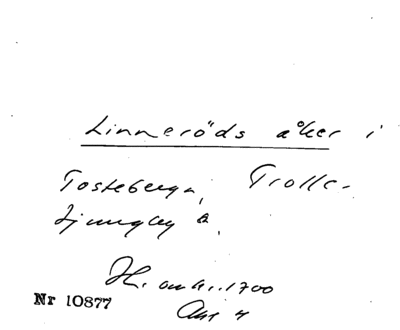 Linneröds åker i
Tosteberga, Trolle-
Ljungby
H. omkr. 1700
Nr 10877